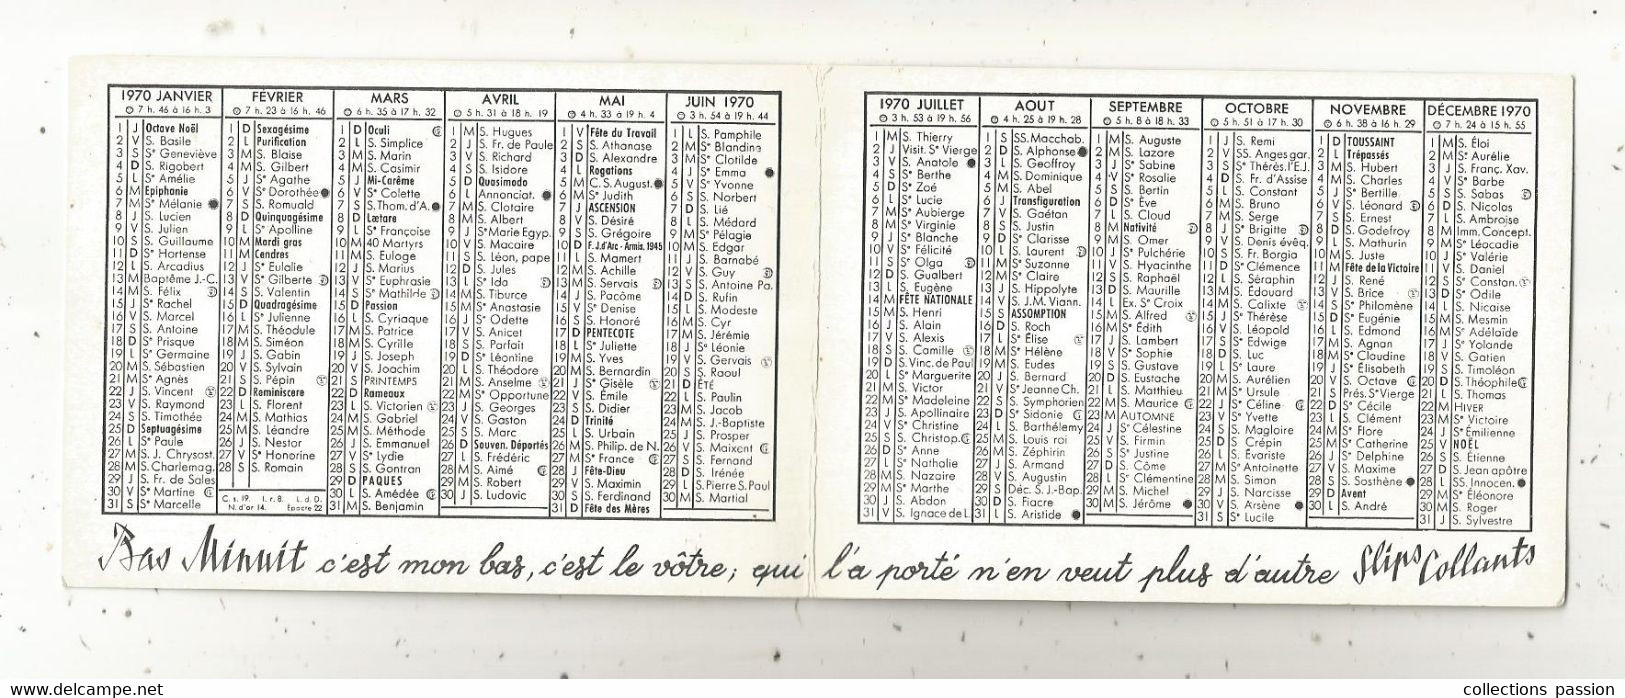 1970 JANVIER
7 h. 46 à 16 h. 3
1 J Octave Noël
2 V S. Basile
3 S Se Geneviève
4 D S. Rigobert
5 L S. Amélie
6 M Epiphanie
7 M Se Mélanie
8 J S. Lucien
9 V S. Julien
10 S S. Guillaume
11 D Se Hortense
12 L S. Arcadius
13 M Baptême J.-C.
14 M S. Félix
15 J Se Rachel
16 V S. Marcel
17 S S. Antoine
18 D Se Prisque
19 L Se Germaine
20 M S. Sébastien
21 M Se Agnès
22 J S. Vincent
23 V S. Raymond
24 S S. Timothée
25 D Septuagésime
26 L Se Paule
27 M S. J. Chrysost.
28 M S. Charlemag.
29 J S. Fr. de Sales
30 V Se Martine
31 S Se Marcelle
FÉVRIER
7 h. 23 à 16 h. 46
1 D Sexagésime
2 L Purification
3 M S. Blaise
4 M S. Gilbert
5 J Se Agathe
6 V Se Dorothée
7 S S. Romuald
8 D Quinquagésime
9 L Se Apolline
10 M Mardi gras
11 M Cendres
12 J Se Eulalie
13 V Se Gilberte
14 S S. Valentin
15 D Quadragésime
16 L Se Julienne
17 M S. Théodule
18 M S. Siméon
19 J S. Gabin
20 V S. Sylvain
21 S S. Pépin
22 D Reminiscere
23 L S. Florent
24 M S. Mathias
25 M S. Léandre
26 J S. Nestor
27 V Se Honorine
28 S S. Romain
C. s. 19. l. r. 8. L. d. D.
N. d'or 14. Epacte 22
MARS
6 h. 35 à 17 h. 32
1 D Oculi
2 L S. Simplice
3 M S. Marin
4 M S. Casimir
5 J Mi-Carême
6 V Se Colette
7 S S. Thom. d'A.
8 D Lætare
9 L Se Françoise
10 M 40 Martyrs
11 M S. Euloge
12 J S. Marius
13 V Se Euphrasie
14 S Se Mathilde
15 D Passion
16 L S. Cyriaque
17 M S. Patrice
18 M S. Cyrille
19 J S. Joseph
20 V S. Joachim
21 S PRINTEMPS
22 D Rameaux
23 L S. Victorien
24 M S. Gabriel
25 M S. Méthode
26 J S. Emmanuel
27 V Se Lydie
28 S S. Gontran
29 D PAQUES
30 L S. Amédée
31 M S. Benjamin
AVRIL
5 h. 31 à 18 h. 19
1 M S. Hugues
2 J S. Fr. de Paule
3 V S. Richard
4 S S. Isidore
5 D Quasimodo
6 L Annonciat.
7 M S. Clotaire
8 M S. Albert
9 J Se Marie Egyp.
10 V S. Macaire
11 S S. Léon, pape
12 D S. Jules
13 L Se Ida
14 M S. Tiburce
15 M Se Anastasie
16 J Se Odette
17 V S. Anicet
18 S S. Parfait
19 D Se Léontine
20 L S. Théodore
21 M S. Anselme
22 M Se Opportune
23 J S. Georges
24 V S. Gaston
25 S S. Marc
26 D Souven. Déportés
27 L S. Frédéric
28 M S. Aimé
29 M S. Robert
30 J S. Ludovic
MAI
4 h. 33 à 19 h. 4
1 V Fête du Travail
2 S S. Athanase
3 D S. Alexandre
4 L Rogations
5 M C. S. August.
6 M Se Judith
7 J ASCENSION
8 V S. Désiré
9 S S. Grégoire
10 D F. J. d'Arc - Armis. 1945
11 L S. Mamert
12 M S. Achille
13 M S. Servais
14 J S. Pacôme
15 V Se Denise
16 S S. Honoré
17 D PENTECOTE
18 L Se Juliette
19 M S. Yves
20 M S. Bernardin
21 J Se Gisèle
22 V S. Émile
23 S S. Didier
24 D Trinité
25 L S. Urbain
26 M S. Philip. de N.
27 M Se France
28 J Fête-Dieu
29 V S. Maximin
30 S S. Ferdinand
31 D Fête des Mères
JUIN 1970
3 h. 54 à 19 h. 44
1 L S. Pamphile
2 M Se Blandine
3 M Se Clotilde
4 J Se Emma
5 V Se Yvonne
6 S S. Norbert
7 D S. Lié
8 L S. Médard
9 M Se Pélagie
10 M S. Edgar
11 J S. Barnabé
12 V S. Guy
13 S S. Antoine Pa.
14 D S. Rufin
15 L S. Modeste
16 M S. Cyr
17 M S. Jérémie
18 J S. Léonie
19 V S. Gervais
20 S S. Raoul
21 D ÉTÉ
22 L S. Paulin
23 M S. Jacob
24 M S. J.-Baptiste
25 J S. Prosper
26 V S. Maixent
27 S S. Fernand
28 D S. Irénée
29 L S. Pierre S. Paul
30 M S. Martial
1970 JUILLET
3 h. 53 à 19 h. 56
1 M S. Thierry
2 J Visit. Se Vierge
3 V S. Anatole
4 S Se Berthe
5 D Se Zoé
6 L Se Lucie
7 M Se Aubierge
8 M Se Virginie
9 J Se Blanche
10 V Se Félicité
11 S Se Olga
12 D S. Gualbert
13 L S. Eugène
14 M FÊTE NATIONALE
15 M S. Henri
16 J S. Alain
17 V S. Alexis
18 S S. Camille
19 D S. Vinc. de Paul
20 L Se Marguerite
21 M S. Victor
22 M Se Madeleine
23 J S. Apollinaire
24 V Se Christine
25 S S. Christop.
26 D Se Anne
27 L Se Nathalie
28 M S. Nazaire
29 M Se Marthe
30 J S. Abdon
31 V S. Ignace de L.
AOUT
4 h. 25 à 19 h. 28
1 S SS. Macchab.
2 D S. Alphonse
3 L S. Geoffroy
4 M S. Dominique
5 M S. Abel
6 J Transfiguration
7 V S. Gaétan
8 S S. Justin
9 D Se Clarisse
10 L S. Laurent
11 M Se Suzanne
12 M Se Claire
13 J S. Hippolyte
14 V S. J.M. Viann.
15 S ASSOMPTION
16 D S. Roch
17 L Se Élise
18 M Se Hélène
19 M S. Eudes
20 J S. Bernard
21 V Se Jeanne Ch.
22 S S. Symphorien
23 D Se Sidonie
24 L S. Barthélemy
25 M S. Louis roi
26 M S. Zéphirin
27 J S. Armand
28 V S. Augustin
29 S Déc. S. J.-Bap.
30 D S. Fiacre
31 L S. Aristide
SEPTEMBRE
5 h. 8 à 18 h. 33
1 M S. Auguste
2 M S. Lazare
3 J Se Sabine
4 V Se Rosalie
5 S S. Bertin
6 D Se Ève
7 L S. Cloud
8 M Nativité
9 M S. Omer
10 J Se Pulchérie
11 V S. Hyacinthe
12 S S. Raphaël
13 D S. Maurille
14 L Ex. Se Croix
15 M S. Alfred
16 M Se Édith
17 J S. Lambert
18 V Se Sophie
19 S S. Gustave
20 D S. Eustache
21 L S. Matthieu
22 M S. Maurice
23 M AUTOMNE
24 J Se Célestine
25 V S. Firmin
26 S Se Justine
27 D S. Côme
28 L Se Clémentine
29 M S. Michel
30 M S. Jérôme
OCTOBRE
5 h. 51 à 17 h. 30
1 J S. Remi
2 V SS. Anges gar.
3 S Se Thérès. l'E.J.
4 D S. Fr. d'Assise
5 L S. Constant
6 M S. Bruno
7 M S. Serge
8 J Se Brigitte
9 V S. Denis évêq.
10 S S. Fr. Borgia
11 D Se Clémence
12 L S. Séraphin
13 M S. Edouard
14 M S. Calixte
15 J Se Thérèse
16 V S. Léopold
17 S Se Edwige
18 D S. Luc
19 L Se Laure
20 M S. Aurélien
21 M Se Ursule
22 J Se Céline
23 V Se Yvette
24 S S. Magloire
25 D S. Crépin
26 L S. Évariste
27 M Se Antoinette
28 M S. Simon
29 J S. Narcisse
30 V S. Arsène
31 S Se Lucile
NOVEMBRE
6 h. 38 à 16 h. 29
1 D TOUSSAINT
2 L Trépassés
3 M S. Hubert
4 M S. Charles
5 J Se Bertille
6 V S. Léonard
7 S S. Ernest
8 D S. Godefroy
9 L S. Mathurin
10 M S. Juste
11 M Fête de la Victoire
12 J S. René
13 V S. Brice
14 S Se Philomène
15 D Se Eugénie
16 L S. Edmond
17 M S. Agnan
18 M Se Claudine
19 J Se Élisabeth
20 V S. Octave
21 S Prés. Se Vierge
22 D Se Cécile
23 L S. Clément
24 M Se Flore
25 M Se Catherine
26 J Se Delphine
27 V S. Maxime
28 S S. Sosthène
29 D Avent
30 L S. André
DÉCEMBRE 1970
7 h. 24 à 15 h. 55
1 M S. Éloi
2 M Se Aurélie
3 J S. Franç. Xav.
4 V Se Barbe
5 S S. Sabas
6 D S. Nicolas
7 L S. Ambroise
8 M Imm. Concept.
9 M Se Léocadie
10 J Se Valérie
11 V S. Daniel
12 S Se Constan.
13 D Se Odile
14 L S. Nicaise
15 M S. Mesmin
16 M Se Adélaïde
17 J Se Yolande
18 V S. Gatien
19 S S. Timoléon
20 D S. Théophile
21 L S. Thomas
22 M HIVER
23 M Se Victoire
24 J Se Émilienne
25 V NOËL
26 S S. Étienne
27 D S. Jean apôtre
28 L SS. Innocen.
29 M Se Éléonore
30 M S. Roger
31 J S. Sylvestre
Bas Minuit c'est mon bas, c'est le vôtre; qui l'a porté n'en veut plus d'autre Slips Collants
collections passion